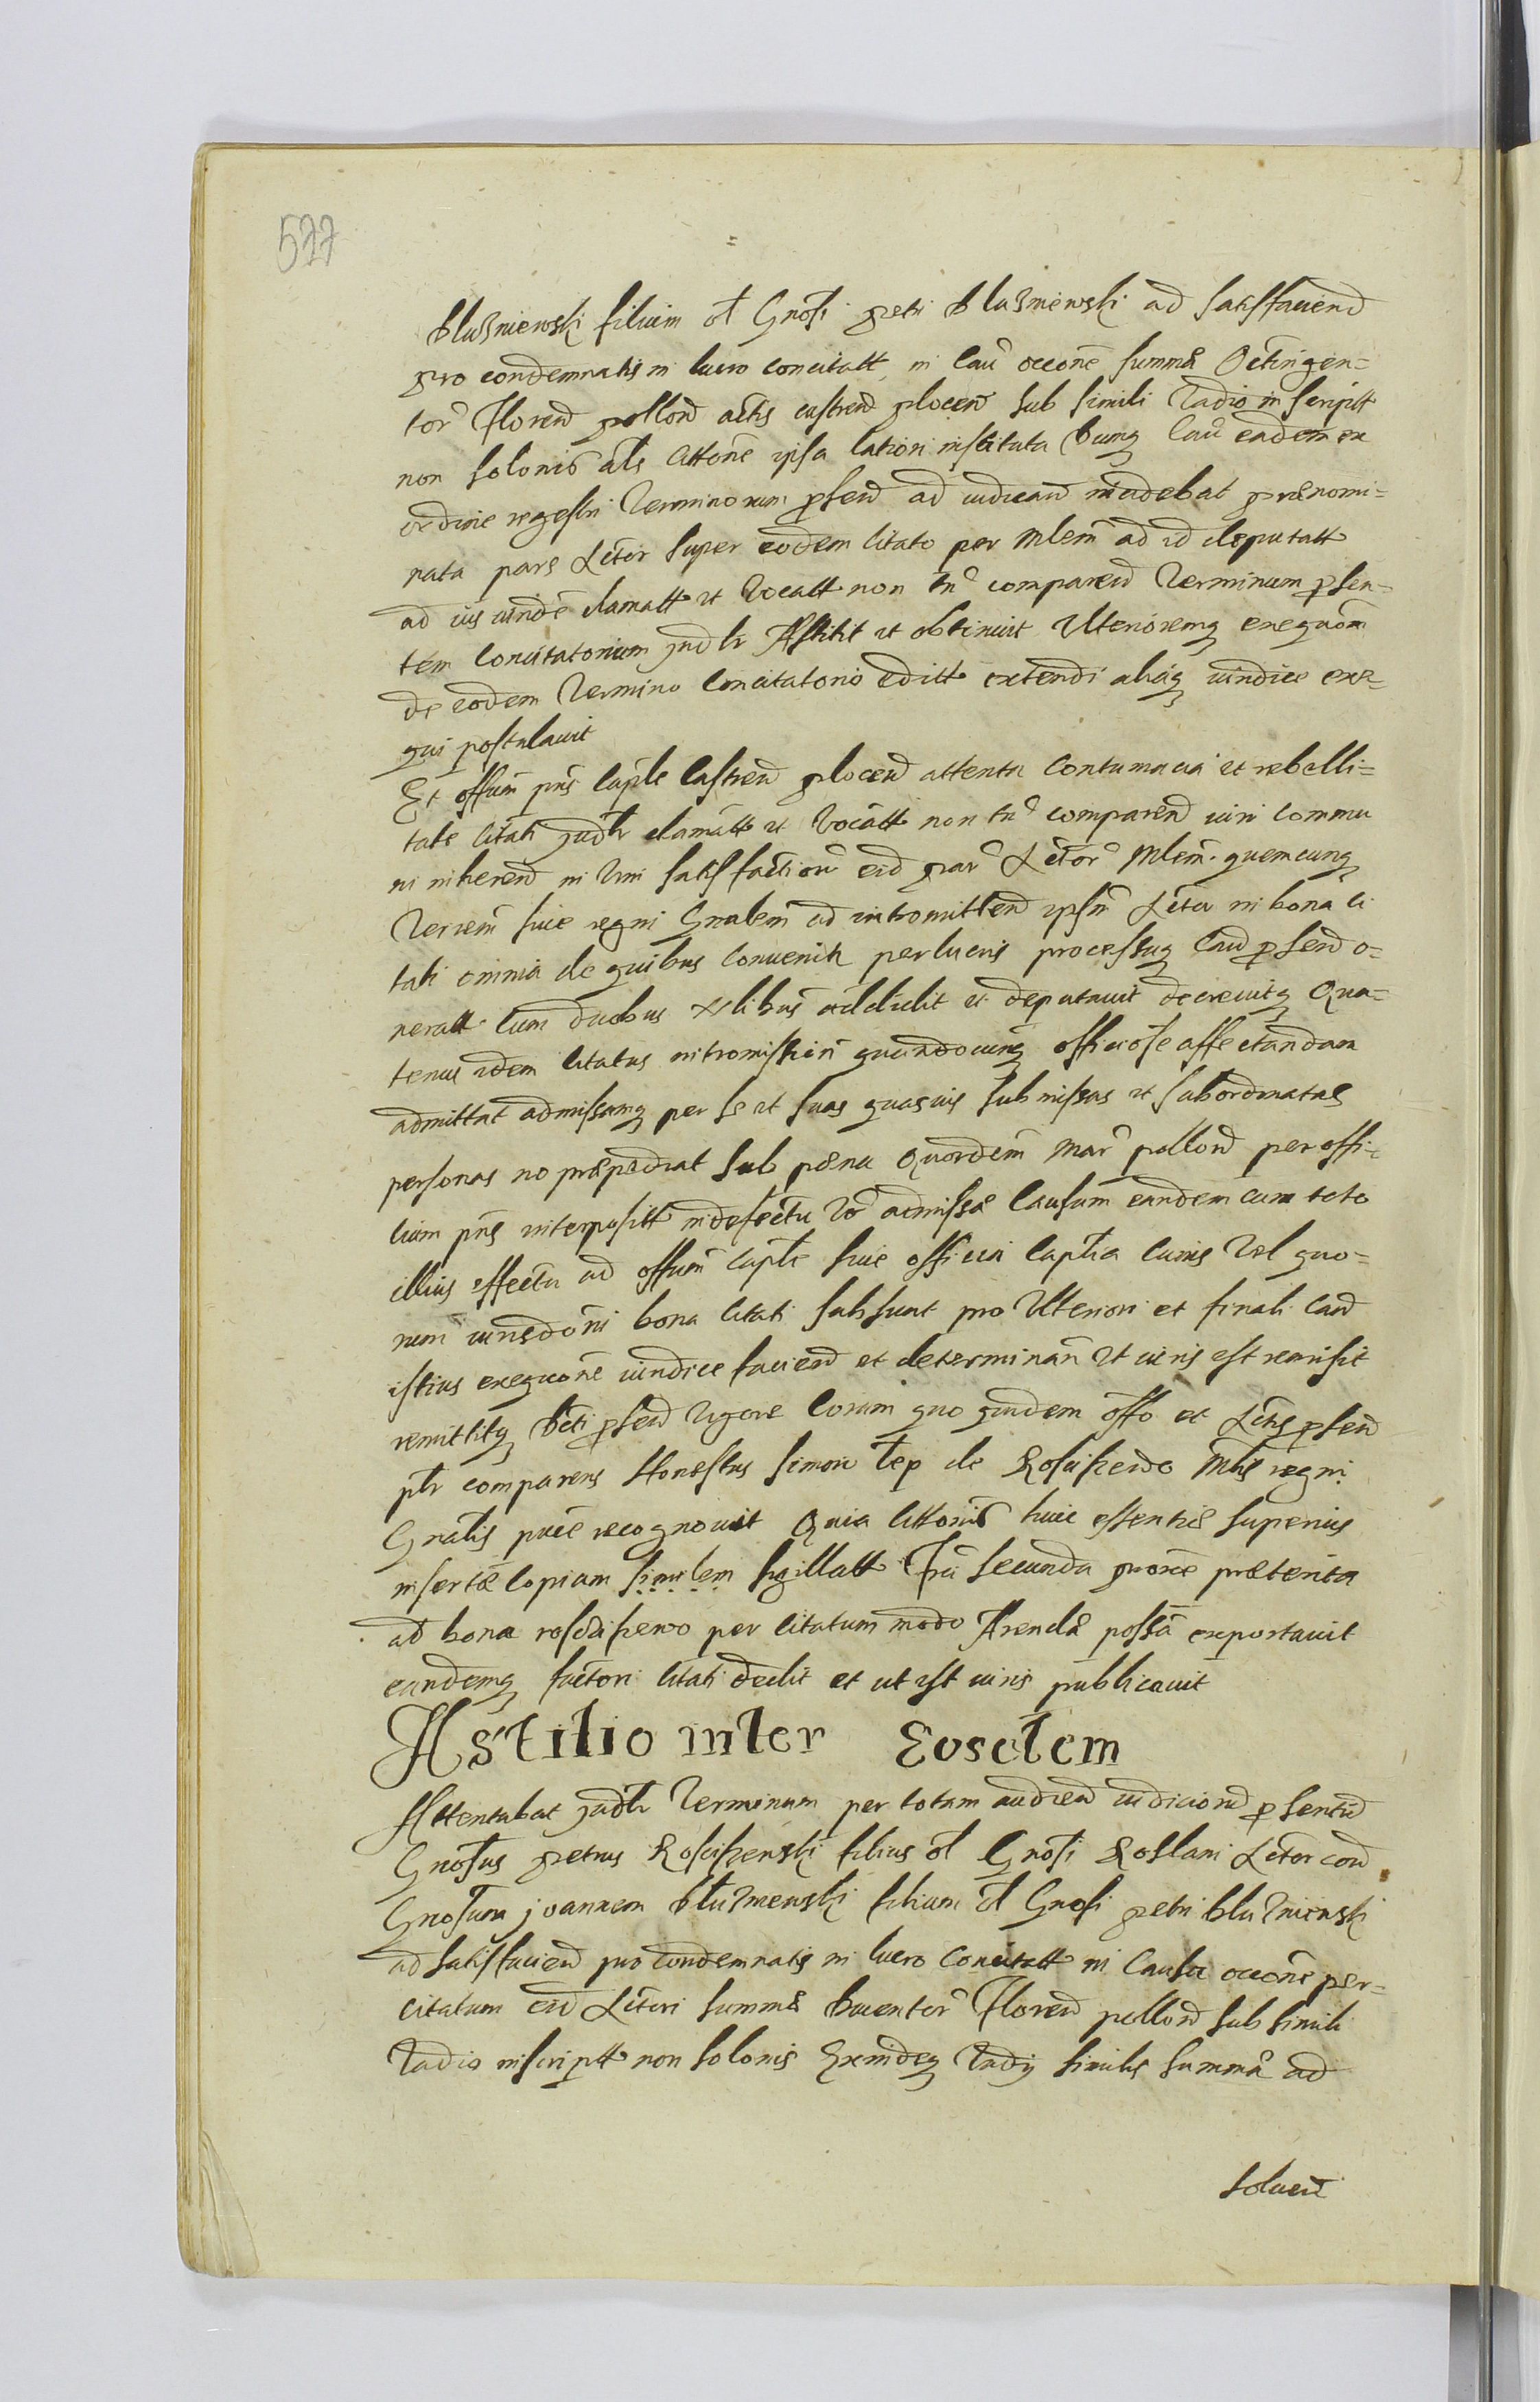 527
Bluzniewski filium ol Gnosi petri Bluzniewski ad satisfaciend
pro condemnatis in lucro concitatt in cau occone summæ Octingen=
tor Floren pollon actis castren plocen sub simili Vadio in script
non solonis als cittone ipsa latiori instituta Dumq cau eadem ex
ordine regestri Terminorum psen ad iudicand incidebat prænomi=
nata pars Lctor super eodem citato per Mlem ad id deputatt
ad ius inde clamatt et vocatt non tn comparen Terminum psen=
tem concitatorium judlr Astitit et obtinuit Ulterioremq exequom
de eodem Termino concitatorio editt extendi aliaq iuridice exe=
qui postulavit
Et offum pns caple castren plocen attenta contumacia et rebelli=
tate citati judlr clamatt et vocatt non tn comparen iuri commu
ni inheren in vim satisfaction eid par Lctor Mlem quemcunq
Terrem huic regni Gnalem ad intromitten ipsm Lctor in bona ci
tati omnia de quibus convenit per lucris processuq cau psen o=
neratt cum duobus Nlibus addidit et deputavit decrevitq Qua=
tenus idem citatus intromission quandocunq officiose affectandam
admittat admissamq per se et suas quasvis submissas et subordinatas
personas no præpediat sub pæna Quordem mar pollon per offi=
cium pns interpositt in defectu vo admissæ causam eandem cum toto
illius effectu ad offum caple sive officia captia cuius vel quo=
rum iurisdoni bona citati subsunt pro Ulteriori et finali cau
istius exequone iuridice facien et determinan ut iuris est remisit
remittitq Dcti psen vigore Coram quo quidem offo et Lctis psen
plr comparens Honestus simon cep de Rosciszewo Mlis regni
Gnalis pure recognovit Quia cittonis huic essentiæ superius
insertæ copiam similem sigillatt fria secunda proxie præterita
ad bona rosciszewo per citatum modo Arendæ possa exportavit
eandemq factori citati dedit et ut est iuris publicavit
Astitio inter Eosdem
Attentabat judlr Terminum per totam audien iudiciorum psentiu
Gnosus petrus Rosciszewski filius ol Gnosi Roslani Lctor con
Gnosum joannem Bluzniewski filium ol Gnosi petri Bluzniewski
ad satisfacien pro condemnatis in lucro concitatt in causa occone per=
citatum eid Lctori summæ Ducentor Floren pollon sub simili
Vadio inscriptt non solonis Exindeq Vadij similis summæ ad
soluen